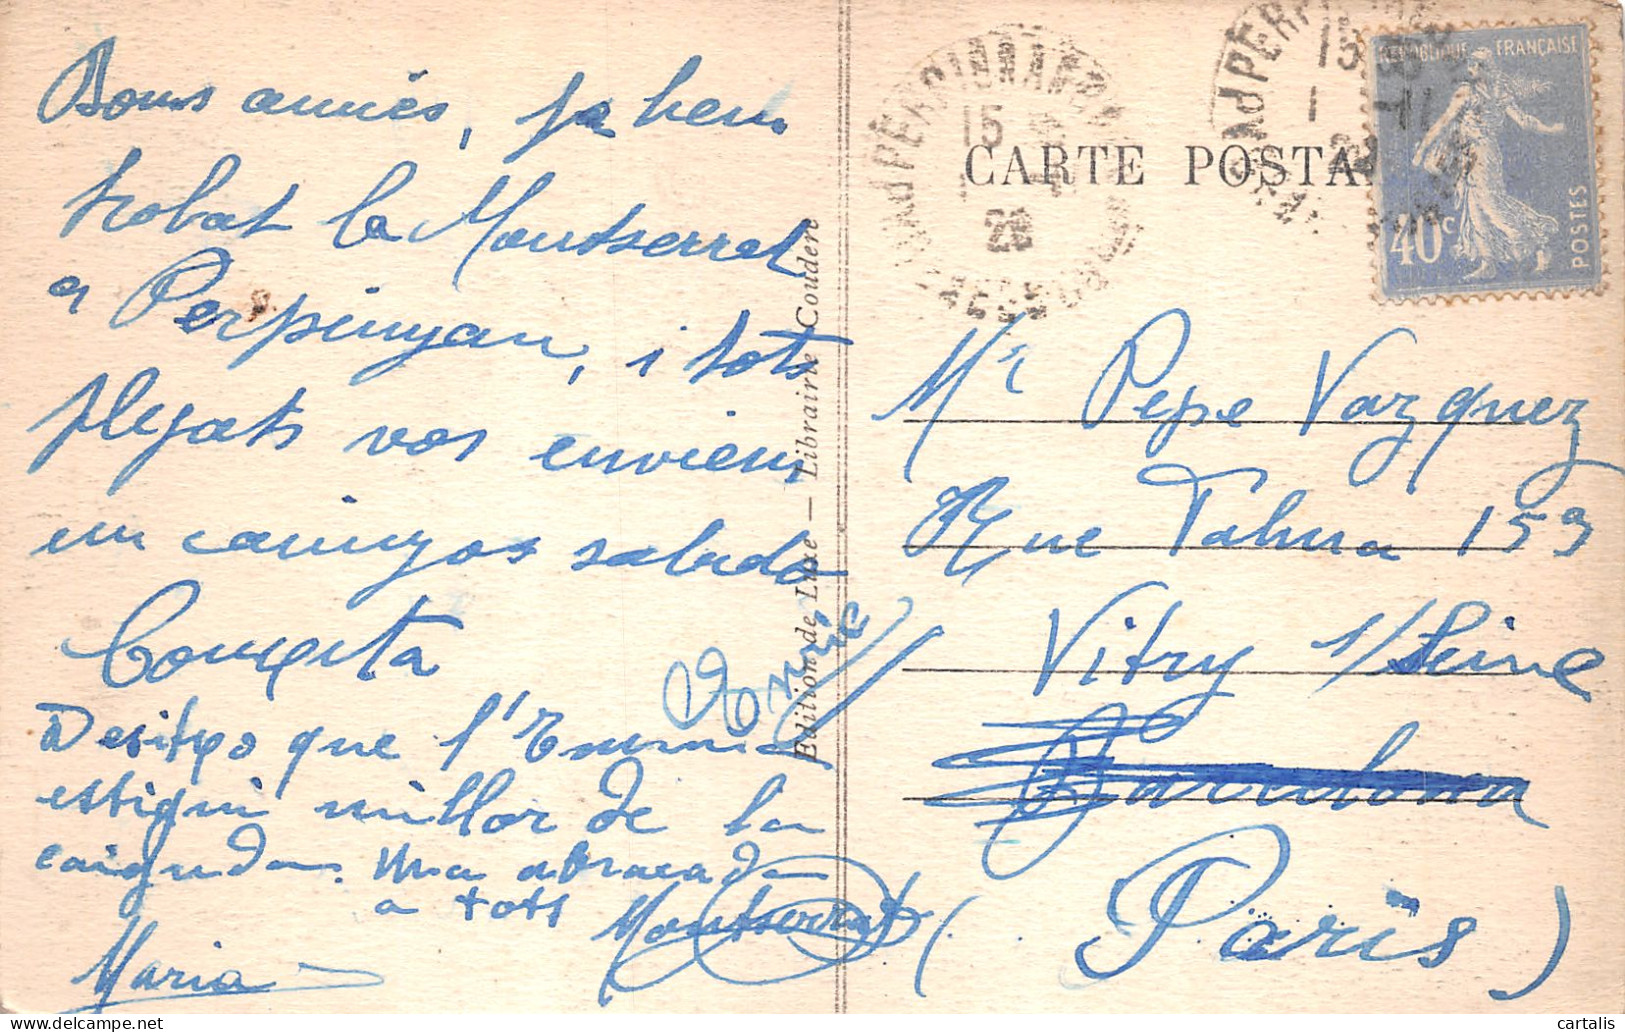 Bons amics, ja hem
trobat la Montserrat
a Perpinyan, i tots
plegats vos enviem
un carinyos salud
Conxita
Enric
Desitjo que l'Emmia
estigui millor de la
caiguda. Una abraçada
a tots Montserrat
Maria
Edition de Luxe — Librairie Couderc
CARTE POSTA
15
28
15
REPUBLIQUE FRANÇAISE
40c POSTES
Mr Pepe Vazquez
Rue Talma 159
Vitry s/Seine
Barcelona
(Paris)
cartalis